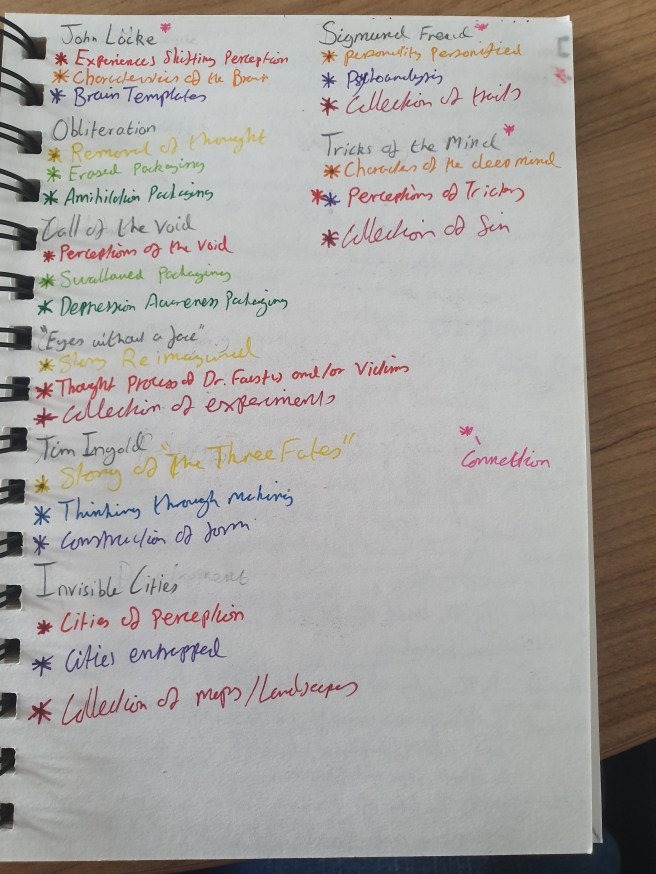 John Locke *
* Experiences Shifting Perception
* Characteristics of the Brain
* Brain Templates
Obliteration
* Removal of thought
* Erased Packaging
* Annihilation Packaging
Call of the Void
* Perceptions of the void
* Swallowed Packaging
* Depression Awareness Packaging
"Eyes without a face"
* Story Reimagined
* Thought Process of Dr. Faustus and/or Victims
* Collection of experiments
Tim Ingold
* Story of "The Three Fates"
* Thinking through making
* Construction of form
Invisible Cities
* Cities of perception
* Cities entrapped
* Collection of maps/Landscapes
Sigmund Freud *
* personality Personified
* Psychoanalysis
* Collection of traits
Tricks of the Mind *
* Characters of the deep mind
** Perceptions of Tricks
* Collection of Sin
*
Connection